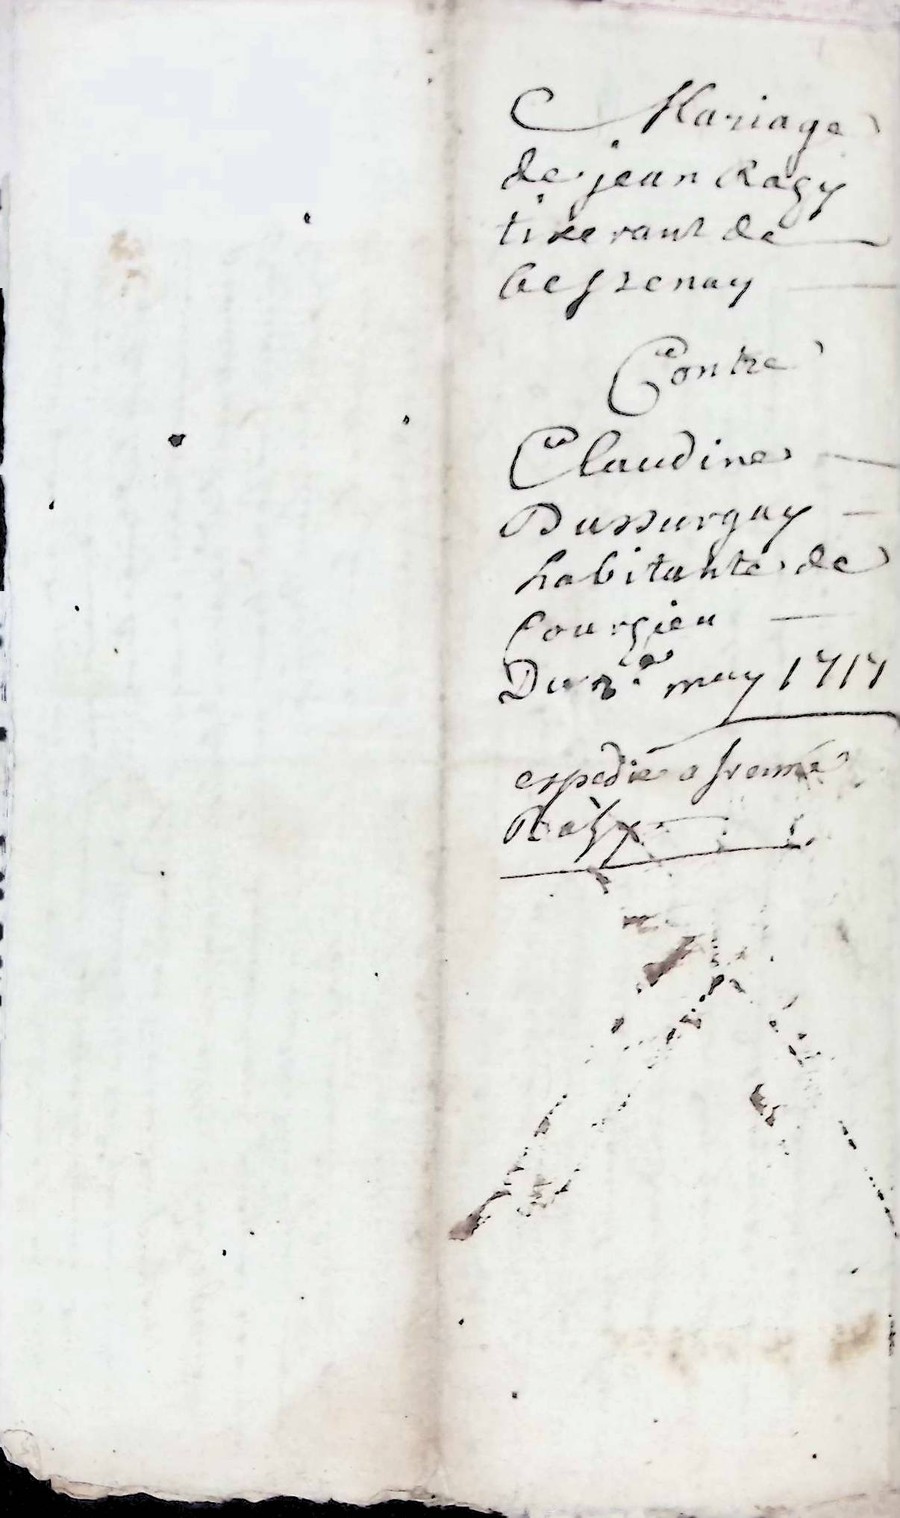 Mariage
de jean Ragy
tixerant de
besSenay
Contre
Claudine
Dussurgey
habitante de
Courzieu
Du may 1717
expedié a